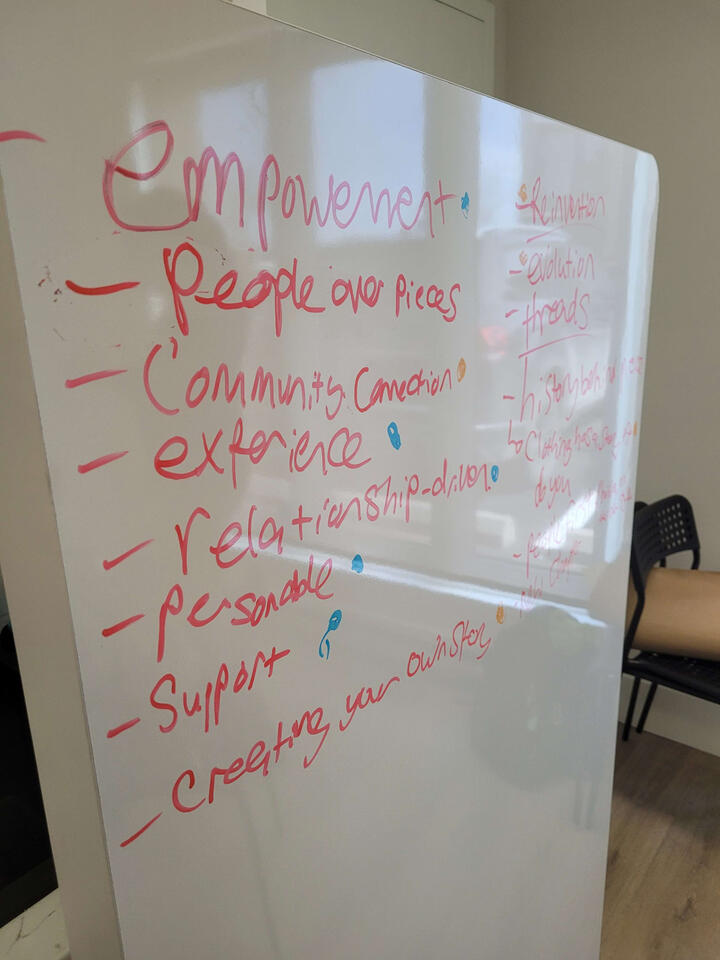 - Empowerment
- People over pieces
- Community Connection
- experience
- relationship-driven
- Personable
- Support
- Creating your own story
- Reinvention
- evolution
- threads
- history behind
↳ Clothing has a story
do you
- people first
- new chapter